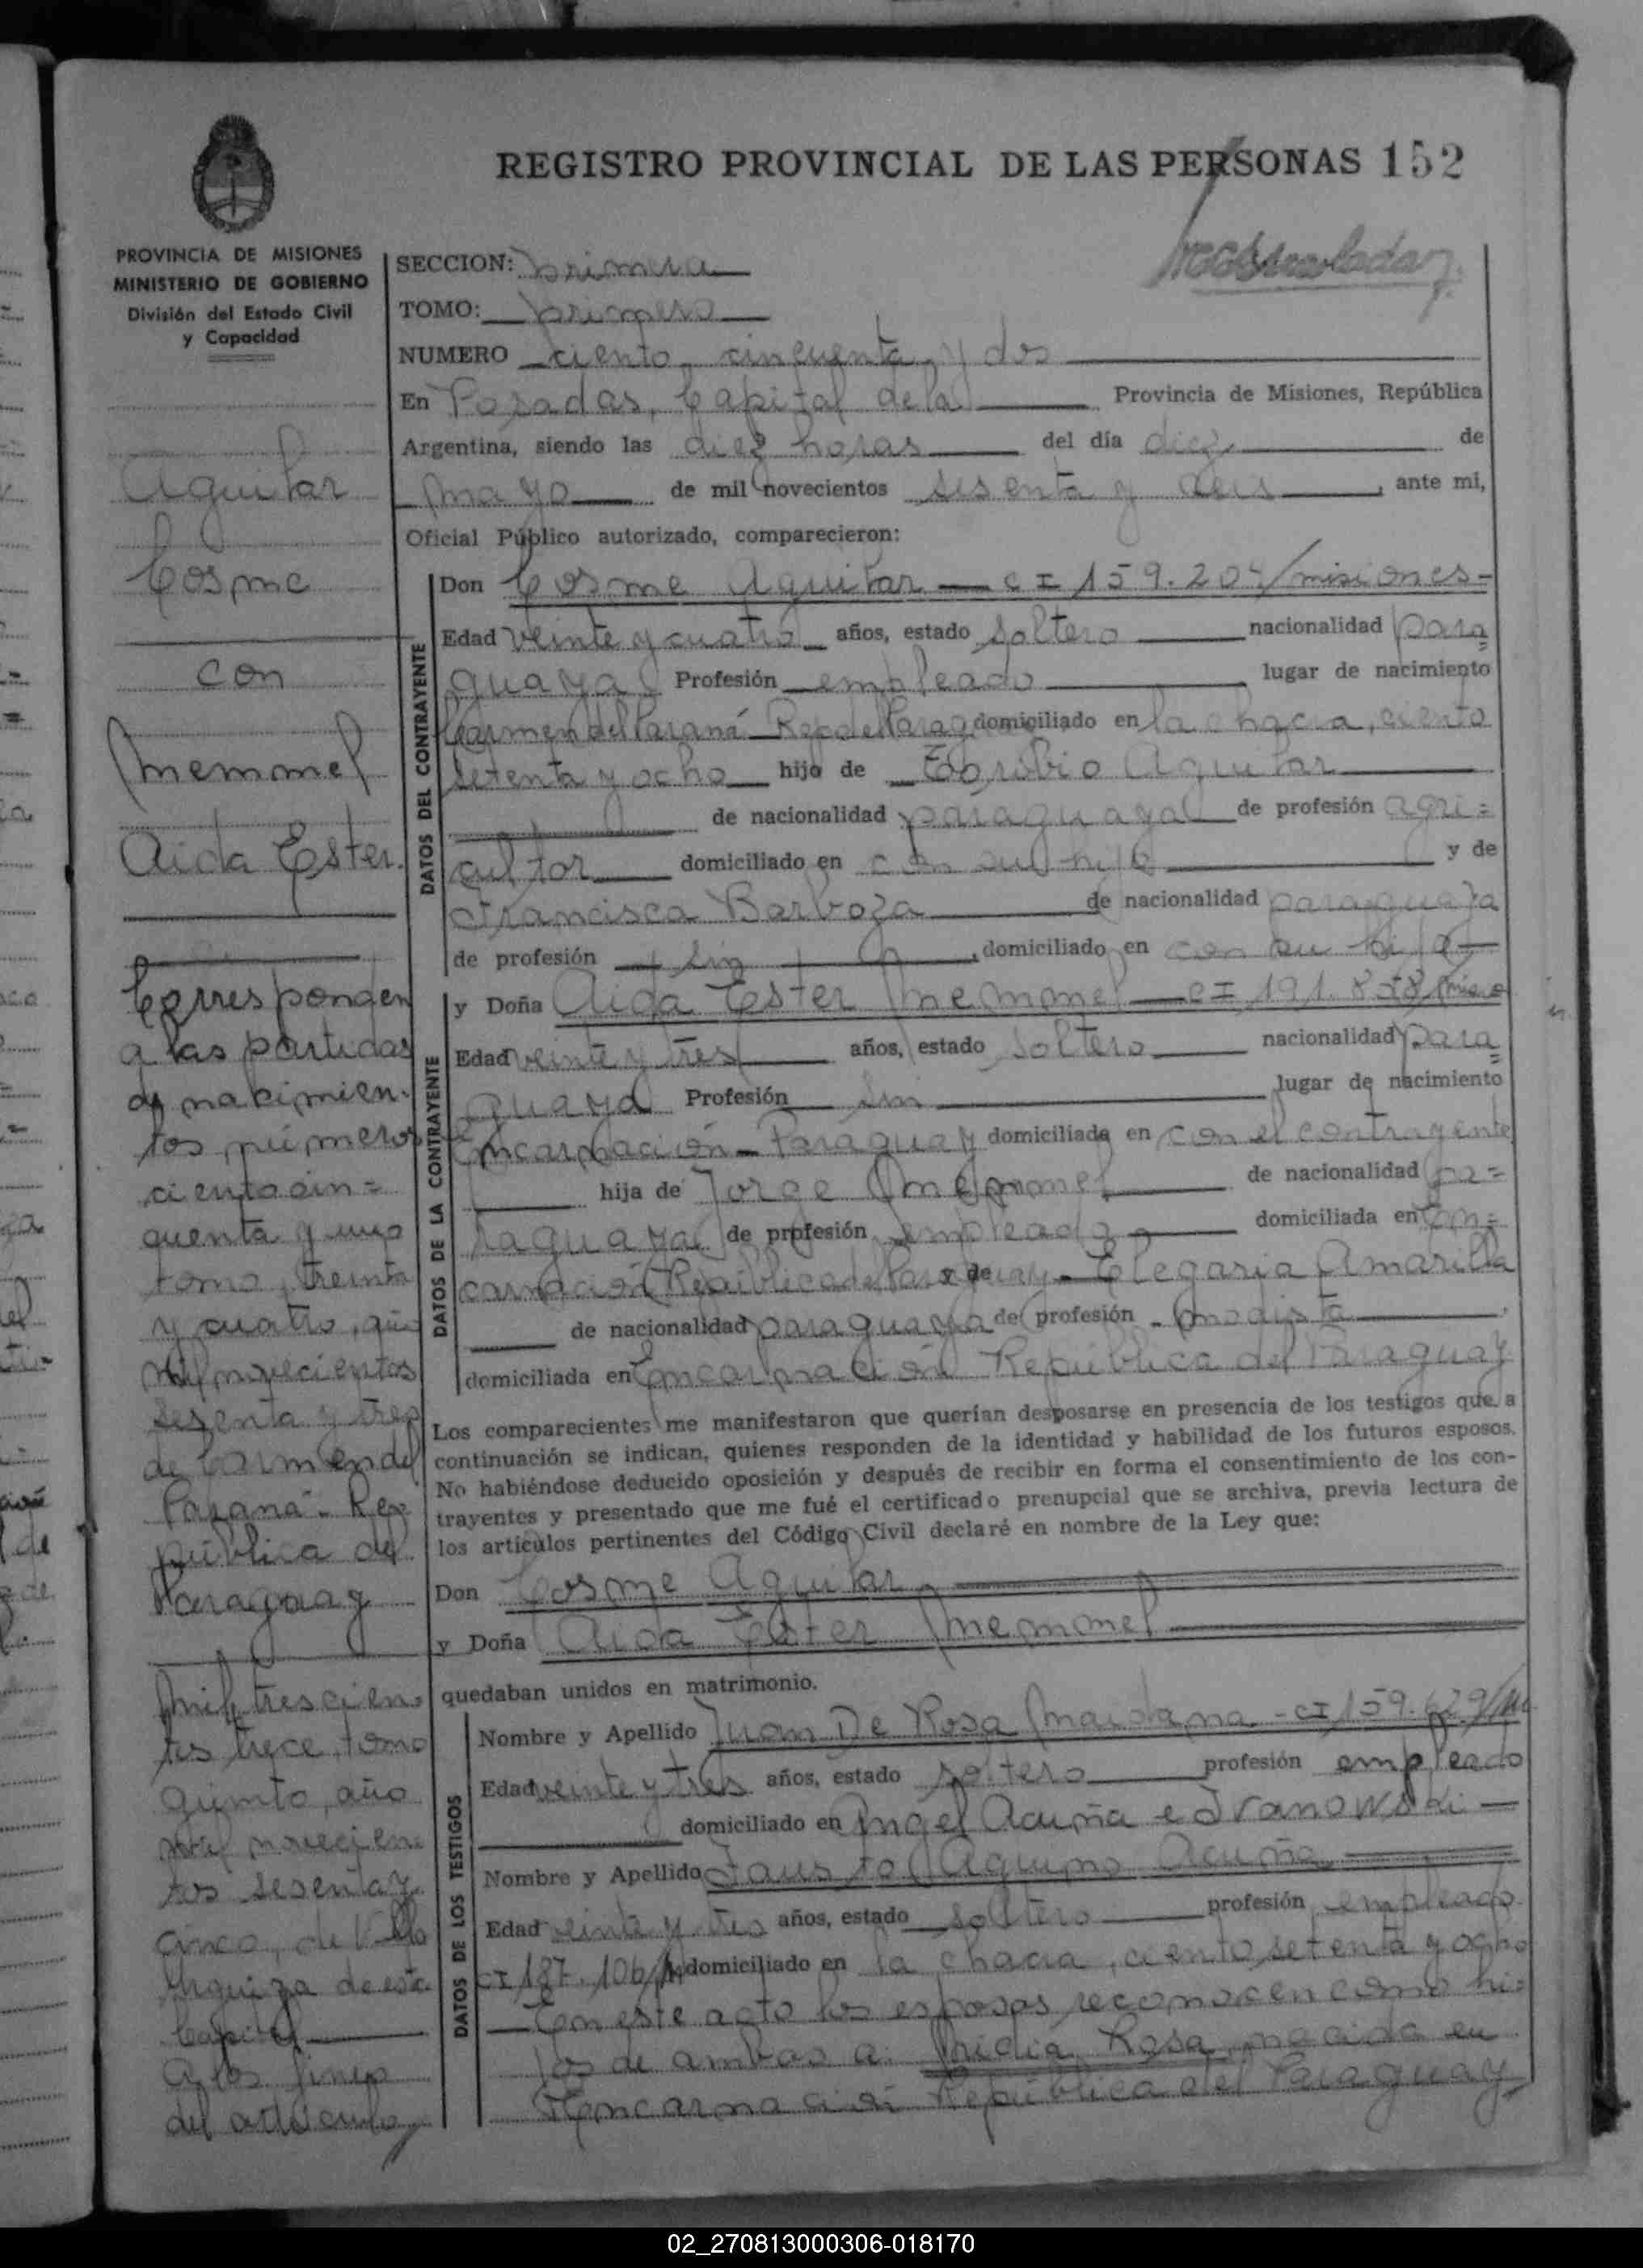 REGISTRO PROVINCIAL DE LAS PERSONAS 152
PROVINCIA DE MISIONES
MINISTERIO DE GOBIERNO
División del Estado Civil
y Capacidad
Aguilar
Cosme
con
Memmel
Aida Ester.
Corresponden
a las partidas
de nacimien-
tos números
ciento cin=
cuenta y uno
tomo, treinta
y cuatro, año
mil novecientos
sesenta y tres
de Carmen del
Paraná - Re
pública del
Paraguay
Mil trescien-
tos trece tomo
quinto, año
mil novecien
tos sesenta y
cinco, de Villa
Urquiza de esta
Capital
A los fines
del artículo
SECCION: primera
TOMO: primero
NUMERO ciento cincuenta y dos
En Posadas, Capital de la Provincia de Misiones, República
Argentina, siendo las diez horas del día diez de
mayo de mil novecientos sesenta y seis, ante mi,
Oficial Público autorizado, comparecieron:
DATOS DEL CONTRAYENTE
Don Cosme Aguilar — CI 159.20 /misiones=
Edad veinte y cuatro años, estado soltero nacionalidad para=
guaya Profesión empleado lugar de nacimiento
Carmen del Paraná Rep del Parag domiciliado en la chacra, ciento
setenta y ocho hijo de Toribio Aguilar
de nacionalidad paraguaya de profesión agri=
cultor domiciliado en con su hijo y de
Francisca Barboza de nacionalidad paraguaya
de profesión sin domiciliado en con su hijo
DATOS DE LA CONTRAYENTE
y Doña Aida Ester Memmel — CI 191.
Edad veinte y tres años, estado soltero nacionalidad para=
guaya Profesión sin lugar de nacimiento
Encarnación - Paraguay domiciliada en con el contrayente
hija de Jorge Memmel de nacionalidad pa=
raguaya de profesión empleado domiciliada en En=
carnación República del Paraguay y de - Elegaria Amarilla
de nacionalidad paraguaya de profesión modista
domiciliada en Encarnación República del Paraguay
Los comparecientes me manifestaron que querían desposarse en presencia de los testigos que a
continuación se indican, quienes responden de la identidad y habilidad de los futuros esposos.
No habiéndose deducido oposición y después de recibir en forma el consentimiento de los con-
trayentes y presentado que me fué el certificado prenupcial que se archiva, previa lectura de
los artículos pertinentes del Código Civil declaré en nombre de la Ley que:
Don Cosme Aguilar
y Doña Aida Ester Memmel
quedaban unidos en matrimonio.
DATOS DE LOS TESTIGOS
Nombre y Apellido Juan De Rosa Maidana - CI 159.629/M
Edad veinte y tres años, estado soltero profesión empleado
domiciliado en Angel Acuña e Ivanowski —
Nombre y Apellido Fausto Aquino Acuña
Edad veinte y tres años, estado soltero profesión empleado
CI 187.106/M domiciliado en la chacra, ciento setenta y ocho
— En este acto los esposos reconocen como hi=
jos de ambos a: Rosa, nacida en
Encarnación República del Paraguay
02_270813000306-018170